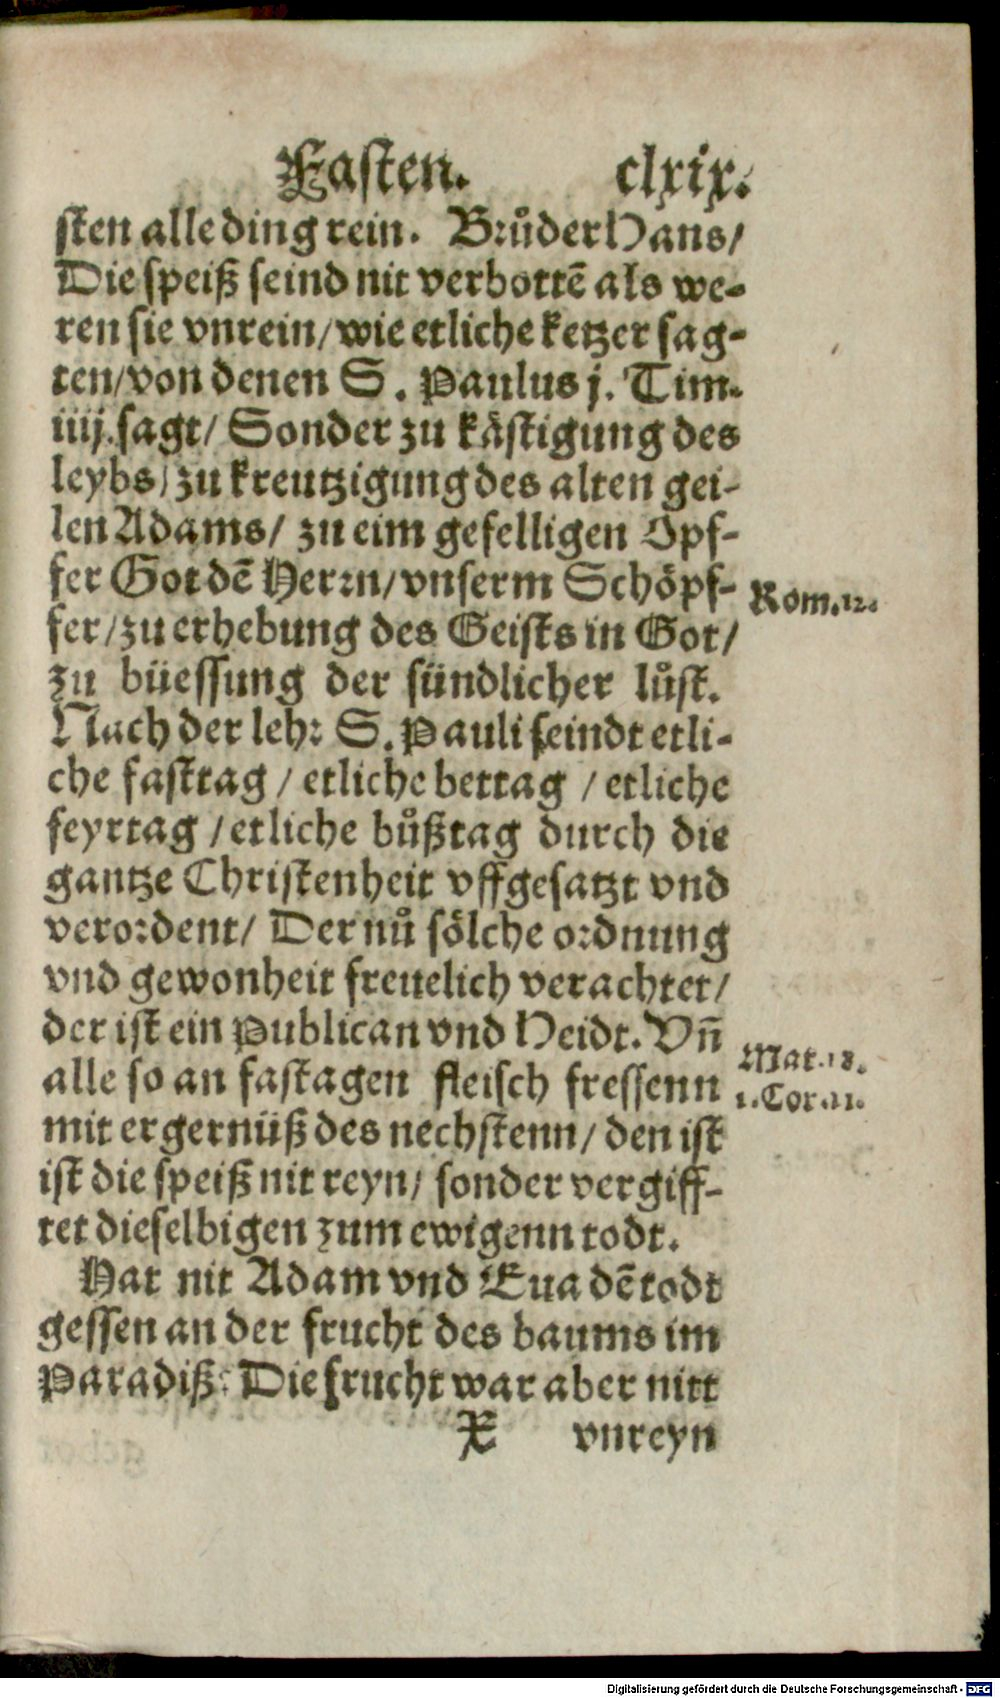 Fasten. clxix.
sten alle ding rein. Brůder Hans/
Die speiß seind nit verbottē als we-
ren sie vnrein/wie etliche ketzer sag-
ten/von denen S. Paulus j. Tim.
iiij.sagt/ Sonder zu kästigung des
leybs/zu kreutzigung des alten gei-
len Adams/ zu eim gefelligen Opf-
fer Got dē Herrn/vnserm Schöpf-
Rom.12.
fer/zu erhebung des Geists in Got/
zu büessung der sündlicher lůst.
Nach der lehr S.Pauli seindt etli-
che fasttag / etliche bettag / etliche
feyrtag / etliche bůßtag durch die
gantze Christenheit vffgesatzt vnd
verordent/ Der nů sölche ordnung
vnd gewonheit freuelich verachtet/
der ist ein Publican vnd Heidt. Vñ
Mat.18.
alle so an fastagen fleisch fressenn
1.Cor.11.
mit ergernüß des nechstenn/ den ist
ist die speiß nit reyn/ sonder vergiff-
tet dieselbigen zum ewigenn todt.
Hat nit Adam vnd Eua dē todt
gessen an der frucht des baums im
Paradiß: Die frucht war aber nitt
X vnreyn
Digitalisierung gefördert durch die Deutsche Forschungsgemeinschaft - DFG